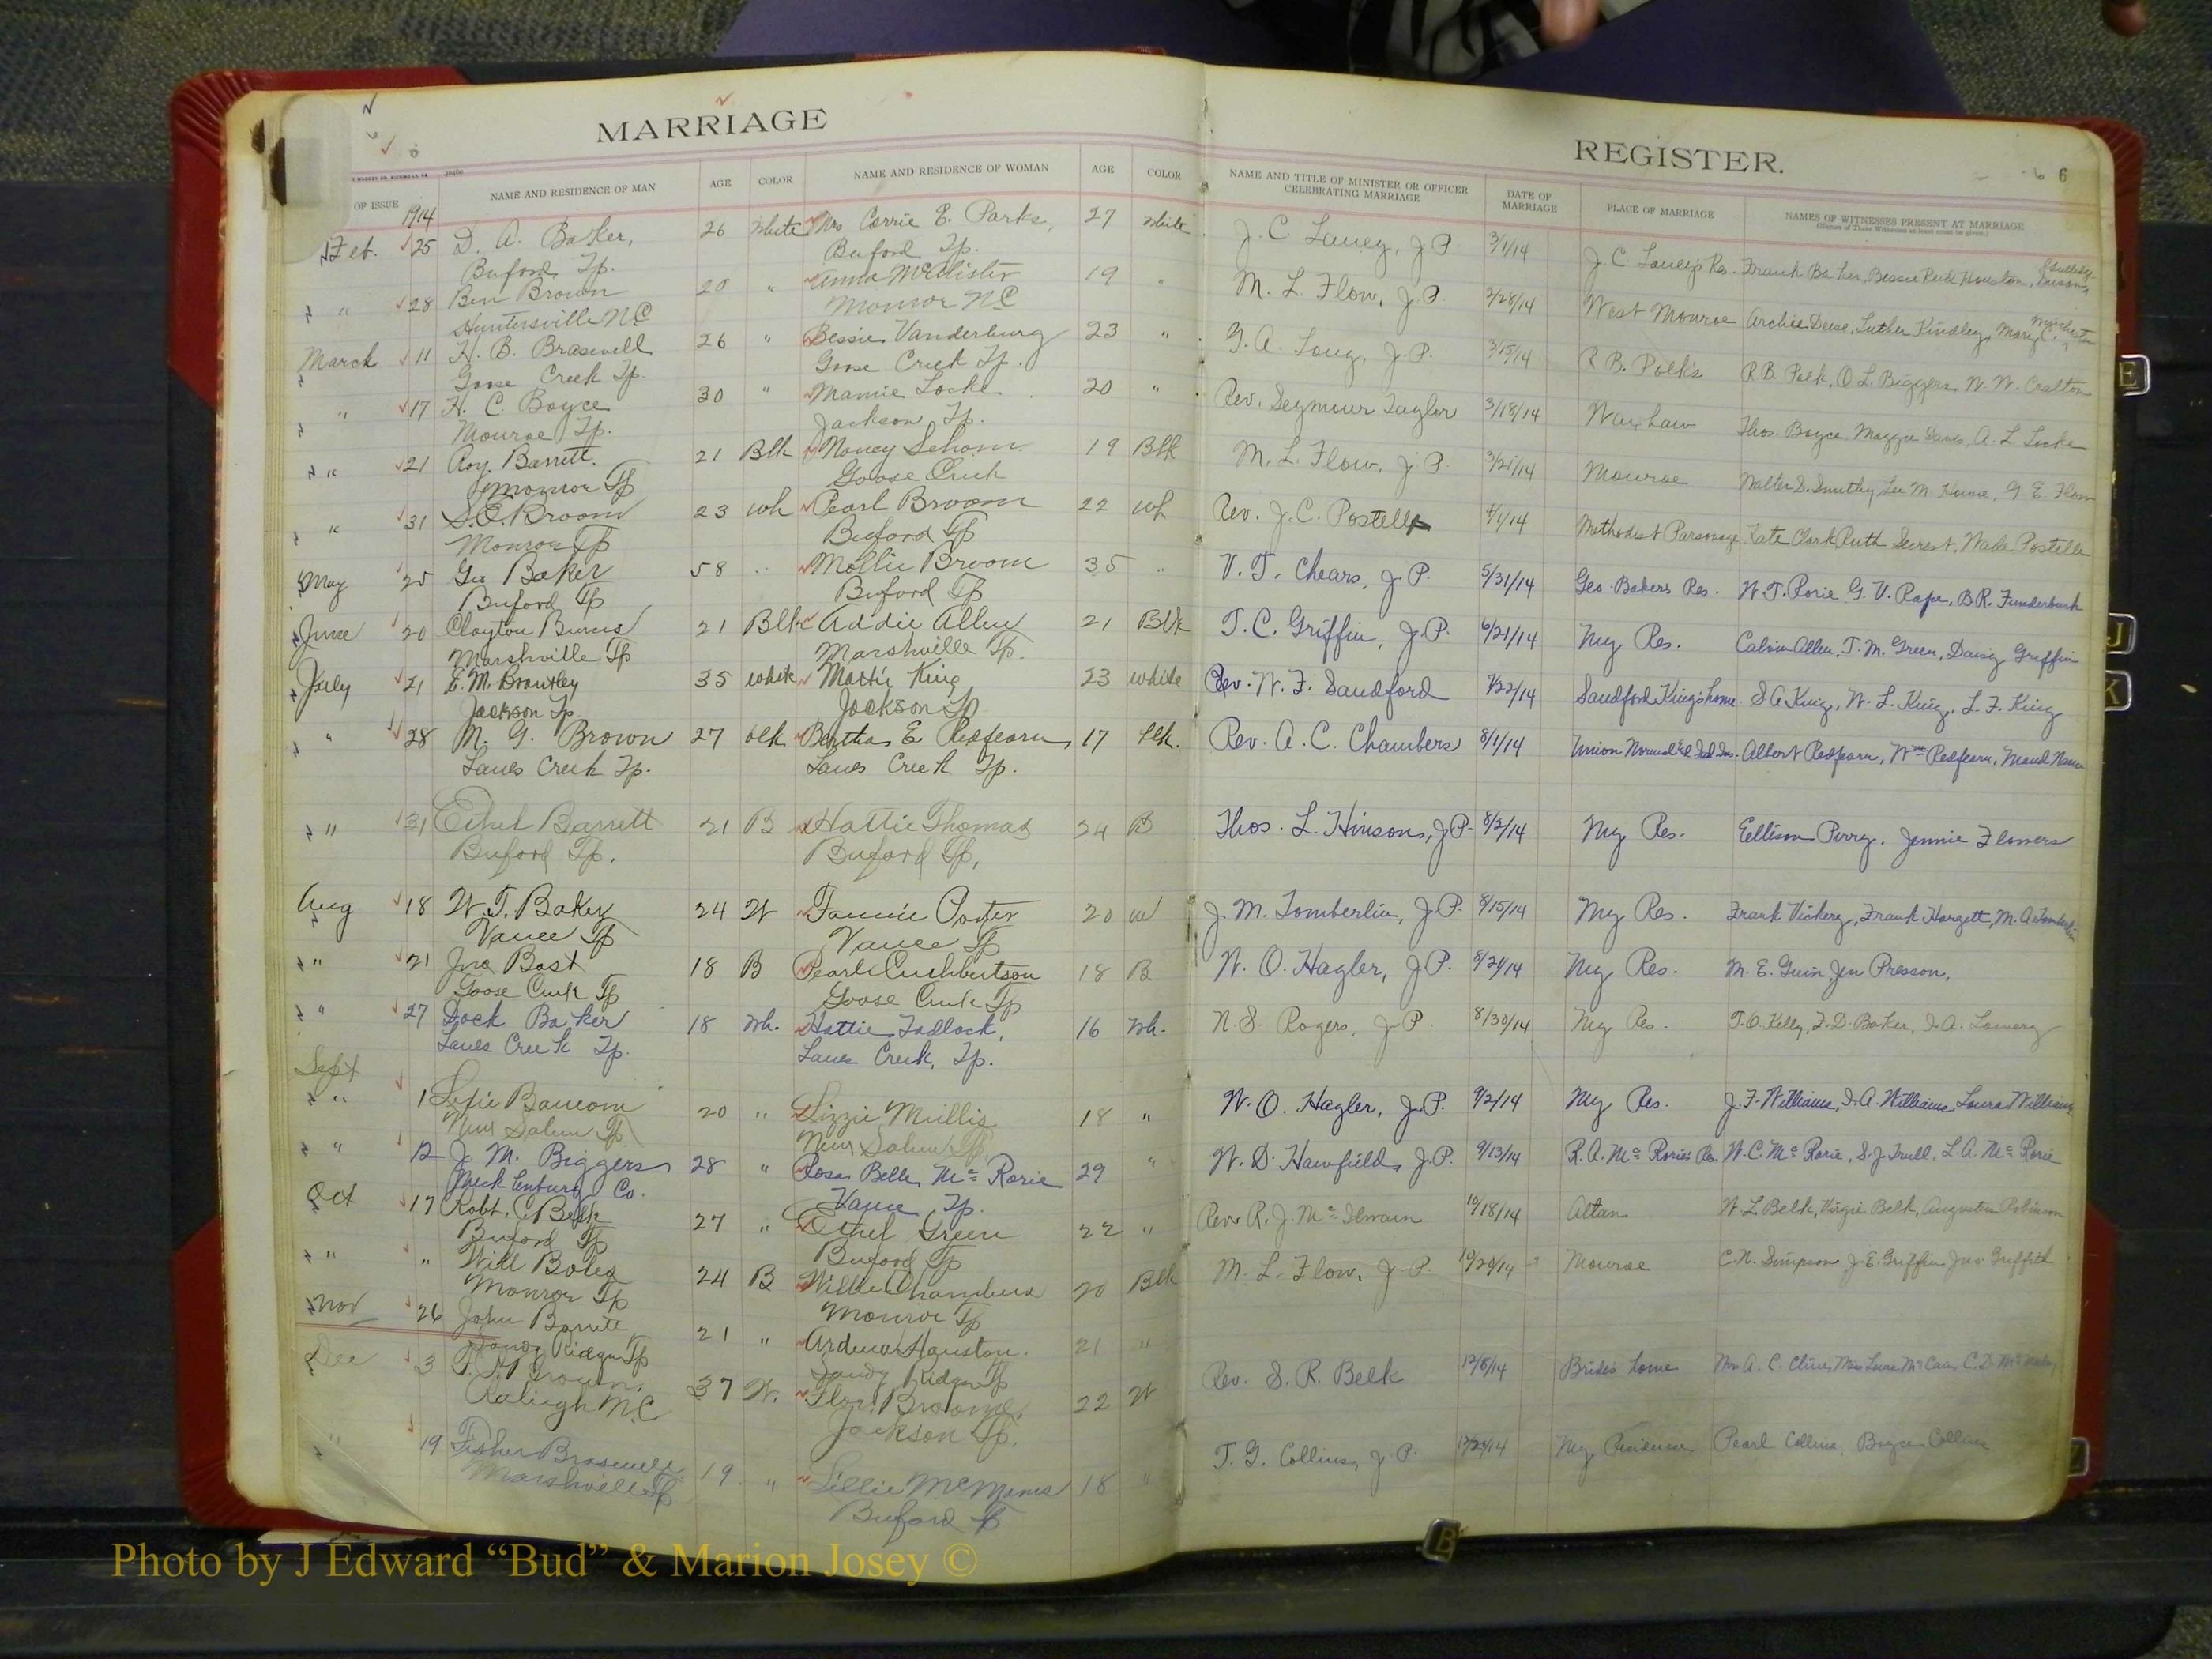 MARRIAGE
REGISTER.
6
OF ISSUE
NAME AND RESIDENCE OF MAN
AGE
COLOR
NAME AND RESIDENCE OF WOMAN
AGE
COLOR
NAME AND TITLE OF MINISTER OR OFFICER
CELEBRATING MARRIAGE
DATE OF
MARRIAGE
PLACE OF MARRIAGE
NAMES OF WITNESSES PRESENT AT MARRIAGE
1914
Feb. 25 D. A. Baker, 26 White Mrs Carrie E. Parks, 27 White J. C. Laney, J. P. 3/1/14 J. C. Laney's Res. Frank Baker, Bessie Reid Houston,
Buford Tp. Buford Tp.
" 28 Ben Brown 20 " Anna McAlister 19 " M. L. Flow, J. P. 2/28/14 West Monroe Archie Deese, Luther Kindley,
Huntersville NC Monroe NC
March 11 H. B. Braswell 26 " Bessie Vanderburg 23 " G. A. Long, J. P. 3/15/14 R B. Polk's R. B. Polk, O. L. Biggers, W. W. Cralton
Goose Creek Tp. Goose Creek Tp.
" 17 H. C. Boyce 30 " Mamie Locke 20 " Rev. Seymour Taylor 3/18/14 Waxhaw Thos. Boyce, Maggie Davis, A. L. Locke
Monroe Tp. Jackson Tp.
" 21 Roy Barrett. 21 Blk Nancy 19 Blk M. L. Flow, J. P. 3/21/14 Monroe Walter S. Lee M. Horne, G. E. Flow
Monroe Tp Goose Creek
" 31 S. E. Broom 23 wh Pearl Broom 22 wh Rev. J. C. Postelle 4/1/14 Methodist Parsonage Kate Clark Ruth Secrest, Wade Postelle
Monroe Tp Buford Tp
May 25 Geo Baker 58 " Mollie Broom 35 " V. T. Chears, J. P. 5/31/14 Geo. Baker's Res. W. T. Rorie G. V. Rape, B. R. Funderburk
Buford Tp Buford Tp
June 20 Clayton Burns 21 Blk Addie Allen 21 Blk T. C. Griffin, J. P. 6/21/14 My Res. Calvin Allen, T. M. Green, Daisy Griffin
Marshville Tp Marshville Tp.
July 21 E. M. Brantley 35 white Mattie King 23 white Rev. W. F. Sandford 7/22/14 Sandford King's home. S. A King, W. L. King, L. F. King
Jackson Tp Jackson Tp
" 28 M. G. Brown 27 blk Bertha E Redfearn, 17 blk. Rev. A. C. Chambers 8/1/14 Union Normal & Ind. Ins. Albert Redfearn, Wm Redfearn, Maud
Lanes Creek Tp. Lanes Creek Tp.
" 31 Ethel Barrett 21 B Hattie Thomas 24 B Thos. L. Hinson, J. P. 8/2/14 My Res. Ellison Perry, Jennie Flowers
Buford Tp. Buford Tp,
Aug 18 W. T. Baker 24 W Fannie Porter 20 W J. M. Tomberlin, J. P. 8/15/14 My Res. Frank Vickery, Frank Hargett, M. A Tomberlin
Vance Tp Vance Tp
" 21 Jno Bost 18 B Pearl Cuthbertson 18 B W. O. Hagler, J. P. 8/21/14 My Res. M. E. Guin Jen Presson,
Goose Creek Tp Goose Creek Tp
" 27 Dock Baker 18 Wh. Hattie Tadlock, 16 Wh. N. S. Rogers, J. P 8/30/14 My Res. T. O. Kelly, F. D. Baker, I. A. Lowery
Lanes Creek Tp. Lanes Creek, Tp.
Sept
" 1 Baucom 20 " Lizzie Mullis 18 " W. O. Hagler, J. P. 9/2/14 My Res. J. F. Williams, I. A. Williams Laura Williams
New Salem Tp New Salem Tp.
" 12 J. M. Biggers 28 " Rosa Belle McRorie 29 " W. D. Hawfield, J. P. 9/13/14 R. A. McRorie's Res. W. C. McRorie, S. J. Trull, L. A. McRorie
Mecklenburg Co. Vance Tp.
Oct 17 Robt. C. Belk 27 " Ethel Green 22 " Rev R. J. McIlwain 10/18/14 Altan W. L. Belk, Virgie Belk, Augustus Robinson
Buford Tp Buford Tp
" " Will 24 B Willie Chambers 20 Blk M. L. Flow, J P. 10/20/14 Monroe C. N. Simpson J. E. Griffin Jno. Griffith
Monroe Tp Monroe Tp
Nov 26 John Barrett 21 " Houston. 21 "
Sandy Ridge Tp Sandy Ridge Tp
Dec 3 Brown, 37 W. Flor. Broome, 22 W Rev. S. R. Belk 12/8/14 Brides home Mrs A. C. Cline,
Raleigh N.C Jackson Tp.
" 19 Fisher Braswell 19 " Lillie McManus 18 " T. G. Collins, J. P. 12/20/14 My Residence Pearl Collins, Boyce Collins
Marshville Tp Buford Tp
E
J
K
B
Photo by J Edward “Bud” & Marion Josey ©